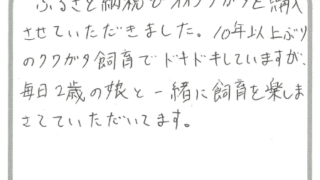 ふるさと納税でオオクワガタを購入
させていただきました。10年以上ぶり
のクワガタ飼育でドキドキしていますが、
毎日2歳の娘と一緒に飼育を楽しま
さてていただいてます。